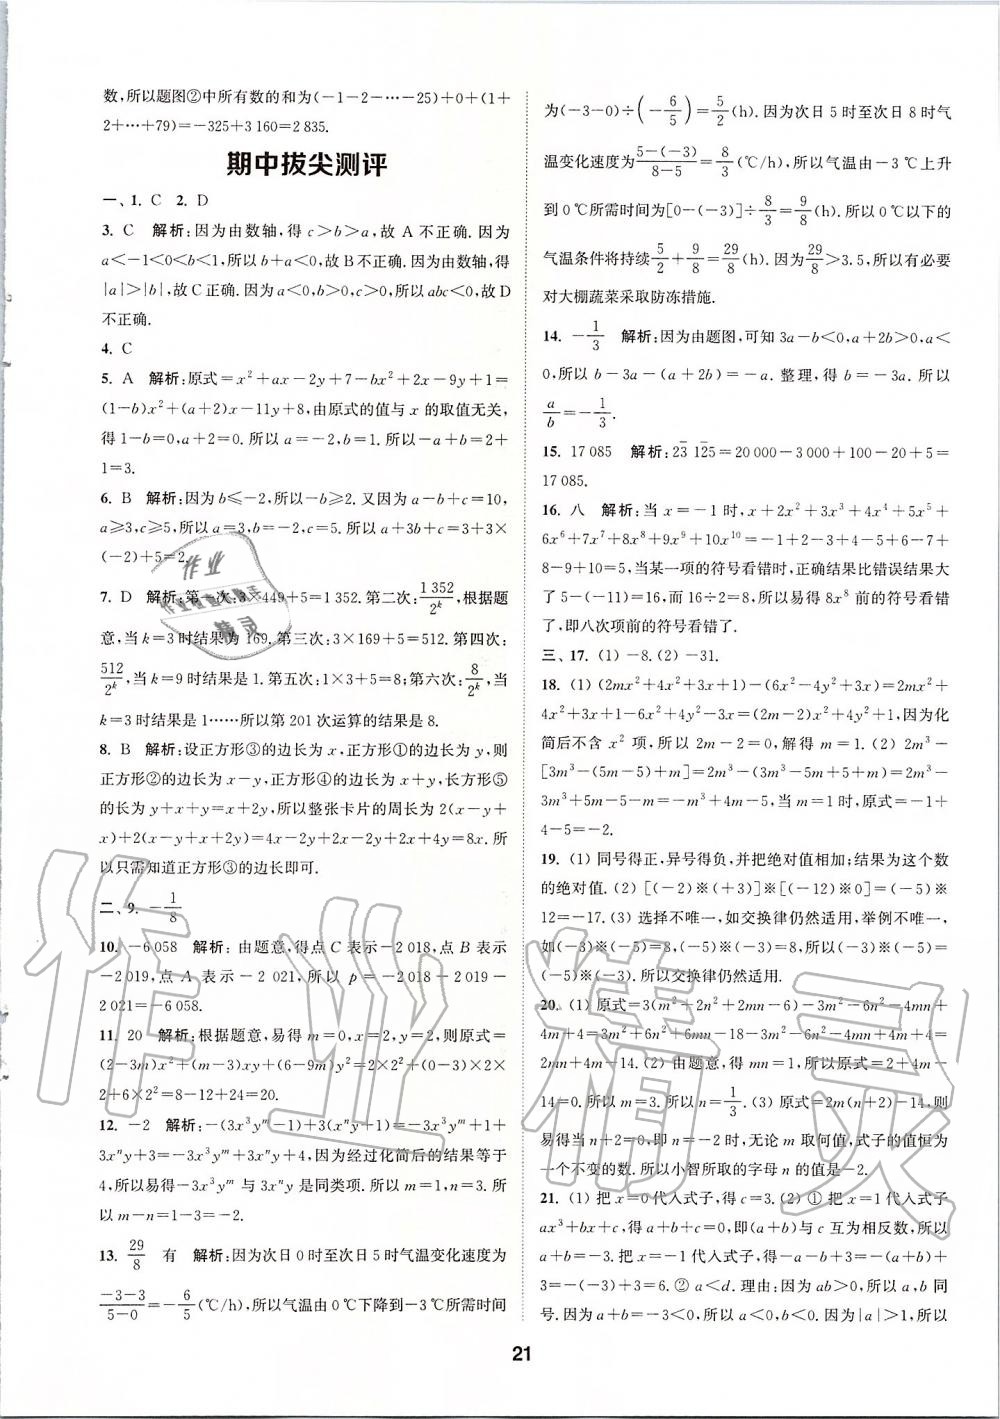 数,所以题图②中所有数的和为(-1-2-…-25)+0+(1+
2+…+79)=-325+3 160=2 835.
期中拔尖测评
一、1. C 2. D
3. C 解析:因为由数轴,得 c>b>a,故 A 不正确. 因为
a<-1<0<b<1,所以 b+a<0,故 B 不正确. 因为由数轴,得
|a|>|b|,故 C 正确. 因为 a<0,b>0,c>0,所以 abc<0,故 D
不正确.
4. C
5. A 解析:原式=x²+ax-2y+7-bx²+2x-9y+1=
(1-b)x²+(a+2)x-11y+8,由原式的值与 x 的取值无关,
得 1-b=0,a+2=0. 所以 a=-2,b=1. 所以-a+b=2+
1=3.
6. B 解析:因为 b≤-2,所以-b≥2. 又因为 a-b+c=10,
a≥3,c≥5,所以 a=3,b=-2,c=5. 所以 a+3b+c=3+3×
(-2)+5=2.
7. D 解析:第一次:3×449+5=1 352. 第二次:1 352/2ᵏ,根据题
意,当 k=3 时结果为 169. 第三次:3×169+5=512. 第四次:
512/2ᵏ,当 k=9 时结果是 1. 第五次:1×3+5=8;第六次:8/2ᵏ,当
k=3 时结果是 1……所以第 201 次运算的结果是 8.
8. B 解析:设正方形③的边长为 x,正方形①的边长为 y,则
正方形②的边长为 x-y,正方形④的边长为 x+y,长方形⑤
的长为 y+x+y=x+2y,所以整张卡片的周长为 2(x-y+
x)+2(x-y+x+2y)=4x-2y+2x-2y+2x+4y=8x. 所
以只需知道正方形③的边长即可.
二、9. -1/8
10. -6 058 解析:由题意,得点 C 表示-2 018,点 B 表示
-2 019,点 A 表示-2 021,所以 p=-2 018-2 019-
2 021=-6 058.
11. 20 解析:根据题意,易得 m=0,x=2,y=2,则原式=
(2-3m)x²+(m-3)xy+(6-9m)y²=2×2²+(0-3)×2×
2+6×2²=8-12+24=20.
12. -2 解析:-(3x³yᵐ-1)+3(xⁿy+1)=-3x³yᵐ+1+
3xⁿy+3=-3x³yᵐ+3xⁿy+4,因为经过化简后的结果等于
4,所以易得-3x³yᵐ 与 3xⁿy 是同类项. 所以 m=1,n=3. 所
以 m-n=1-3=-2.
13. 29/8 有 解析:因为次日 0 时至次日 5 时气温变化速度为
(-3-3)/(5-0)=-6/5(℃/h),所以气温由 0 ℃下降到-3 ℃所需时间
为(-3-0)÷(-6/5)=5/2(h). 因为次日 5 时至次日 8 时气
温变化速度为(5-(-3))/(8-5)=8/3(℃/h),所以气温由-3 ℃上升
到 0 ℃所需时间为[0-(-3)]÷8/3=9/8(h). 所以 0 ℃以下的
气温条件将持续5/2+9/8=29/8(h). 因为29/8>3.5,所以有必要
对大棚蔬菜采取防冻措施.
14. -1/3 解析:因为由题图,可知 3a-b<0,a+2b>0,a<
0,所以 b-3a-(a+2b)=-a. 整理,得 b=-3a. 所以
a/b=-1/3.
15. 17 085 解析:23̄ 12̄5=20 000-3 000+100-20+5=
17 085.
16. 八 解析:当 x=-1 时,x+2x²+3x³+4x⁴+5x⁵+
6x⁶+7x⁷+8x⁸+9x⁹+10x¹⁰=-1+2-3+4-5+6-7+
8-9+10=5,当某一项的符号看错时,正确结果比错误结果大
了 5-(-11)=16,而 16÷2=8,所以易得 8x⁸ 前的符号看错
了,即八次项前的符号看错了.
三、17. (1) -8. (2) -31.
18. (1) (2mx²+4x²+3x+1)-(6x²-4y²+3x)=2mx²+
4x²+3x+1-6x²+4y²-3x=(2m-2)x²+4y²+1,因为化
简后不含 x² 项,所以 2m-2=0,解得 m=1. (2) 2m³-
[3m³-(5m-5)+m]=2m³-(3m³-5m+5+m)=2m³-
3m³+5m-5-m=-m³+4m-5,当 m=1 时,原式=-1+
4-5=-2.
19. (1) 同号得正,异号得负,并把绝对值相加;结果为这个数
的绝对值. (2) [(-2)※(+3)]※[(-12)※0]=(-5)※
12=-17. (3) 选择不唯一,如交换律仍然适用,举例不唯一,
如(-3)※(-5)=8,(-5)※(-3)=8,所以(-3)※(-5)=
(-5)※(-3). 所以交换律仍然适用.
20. (1) 原式=3(m²+2n²+2mn-6)-3m²-6n²-4mn+
4m+4=3m²+6n²+6mn-18-3m²-6n²-4mn+4m+4=
2mn+4m-14. (2) 由题意,得 mn=1,所以原式=2+4m-
14=0. 所以 m=3. 所以 n=1/3. (3) 原式=2m(n+2)-14,则
易得当 n+2=0,即 n=-2 时,无论 m 取何值,式子的值恒为
一个不变的数. 所以小智所取的字母 n 的值是-2.
21. (1) 把 x=0 代入式子,得 c=3. (2) ① 把 x=1 代入式子
ax³+bx+c,得 a+b+c=0,即(a+b)与 c 互为相反数,所以
a+b=-3. 把 x=-1 代入式子,得-a-b+c=-(a+b)+
3=-(-3)+3=6. ② a<d. 理由:因为 ab>0,所以 a,b 同
号. 因为 a+b=-3<0,所以 a<0,b<0. 因为|a|>1,所以
21
作业
精灵
作业精灵